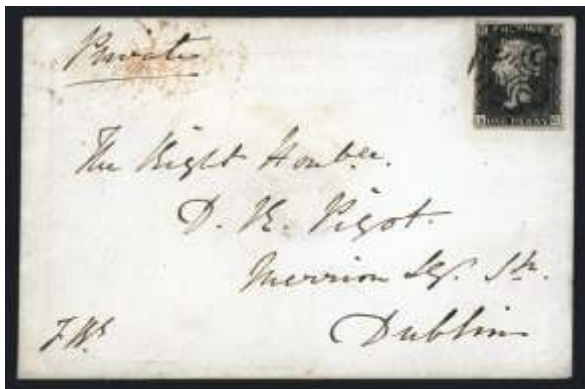 Private
POSTAGE
ONE PENNY
The Right Honble.
D. R. Pigot.
Merrion Sq. Sth.
Dublin